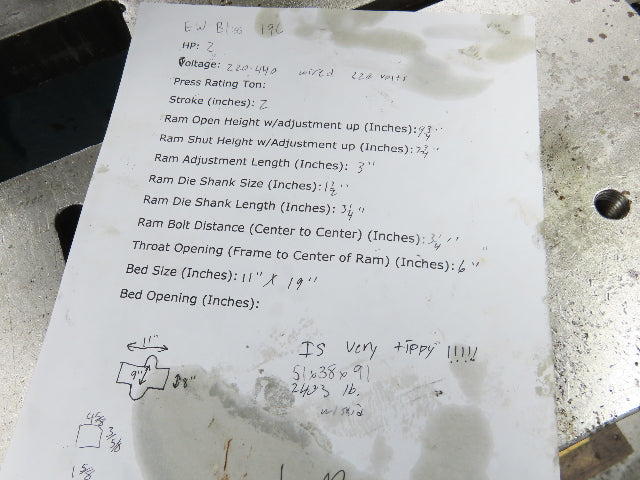 EW Bliss 19C
HP: 2
Voltage: 220-440 wired 220 volts
Press Rating Ton:
Stroke (inches): 2
Ram Open Height w/adjustment up (Inches): 9 3/4"
Ram Shut Height w/Adjustment up (Inches): 7 3/4"
Ram Adjustment Length (Inches): 3"
Ram Die Shank Size (Inches): 1 1/2"
Ram Die Shank Length (Inches): 3 1/4"
Ram Bolt Distance (Center to Center) (Inches): 3 1/4"
Throat Opening (Frame to Center of Ram) (Inches): 6"
Bed Size (Inches): 11" X 19"
Bed Opening (Inches):
Is very tippy !!!!!
11"
51x38x91
9" 8"
2603 lb.
w/skid
4 5/8
3 5/8
1 5/8